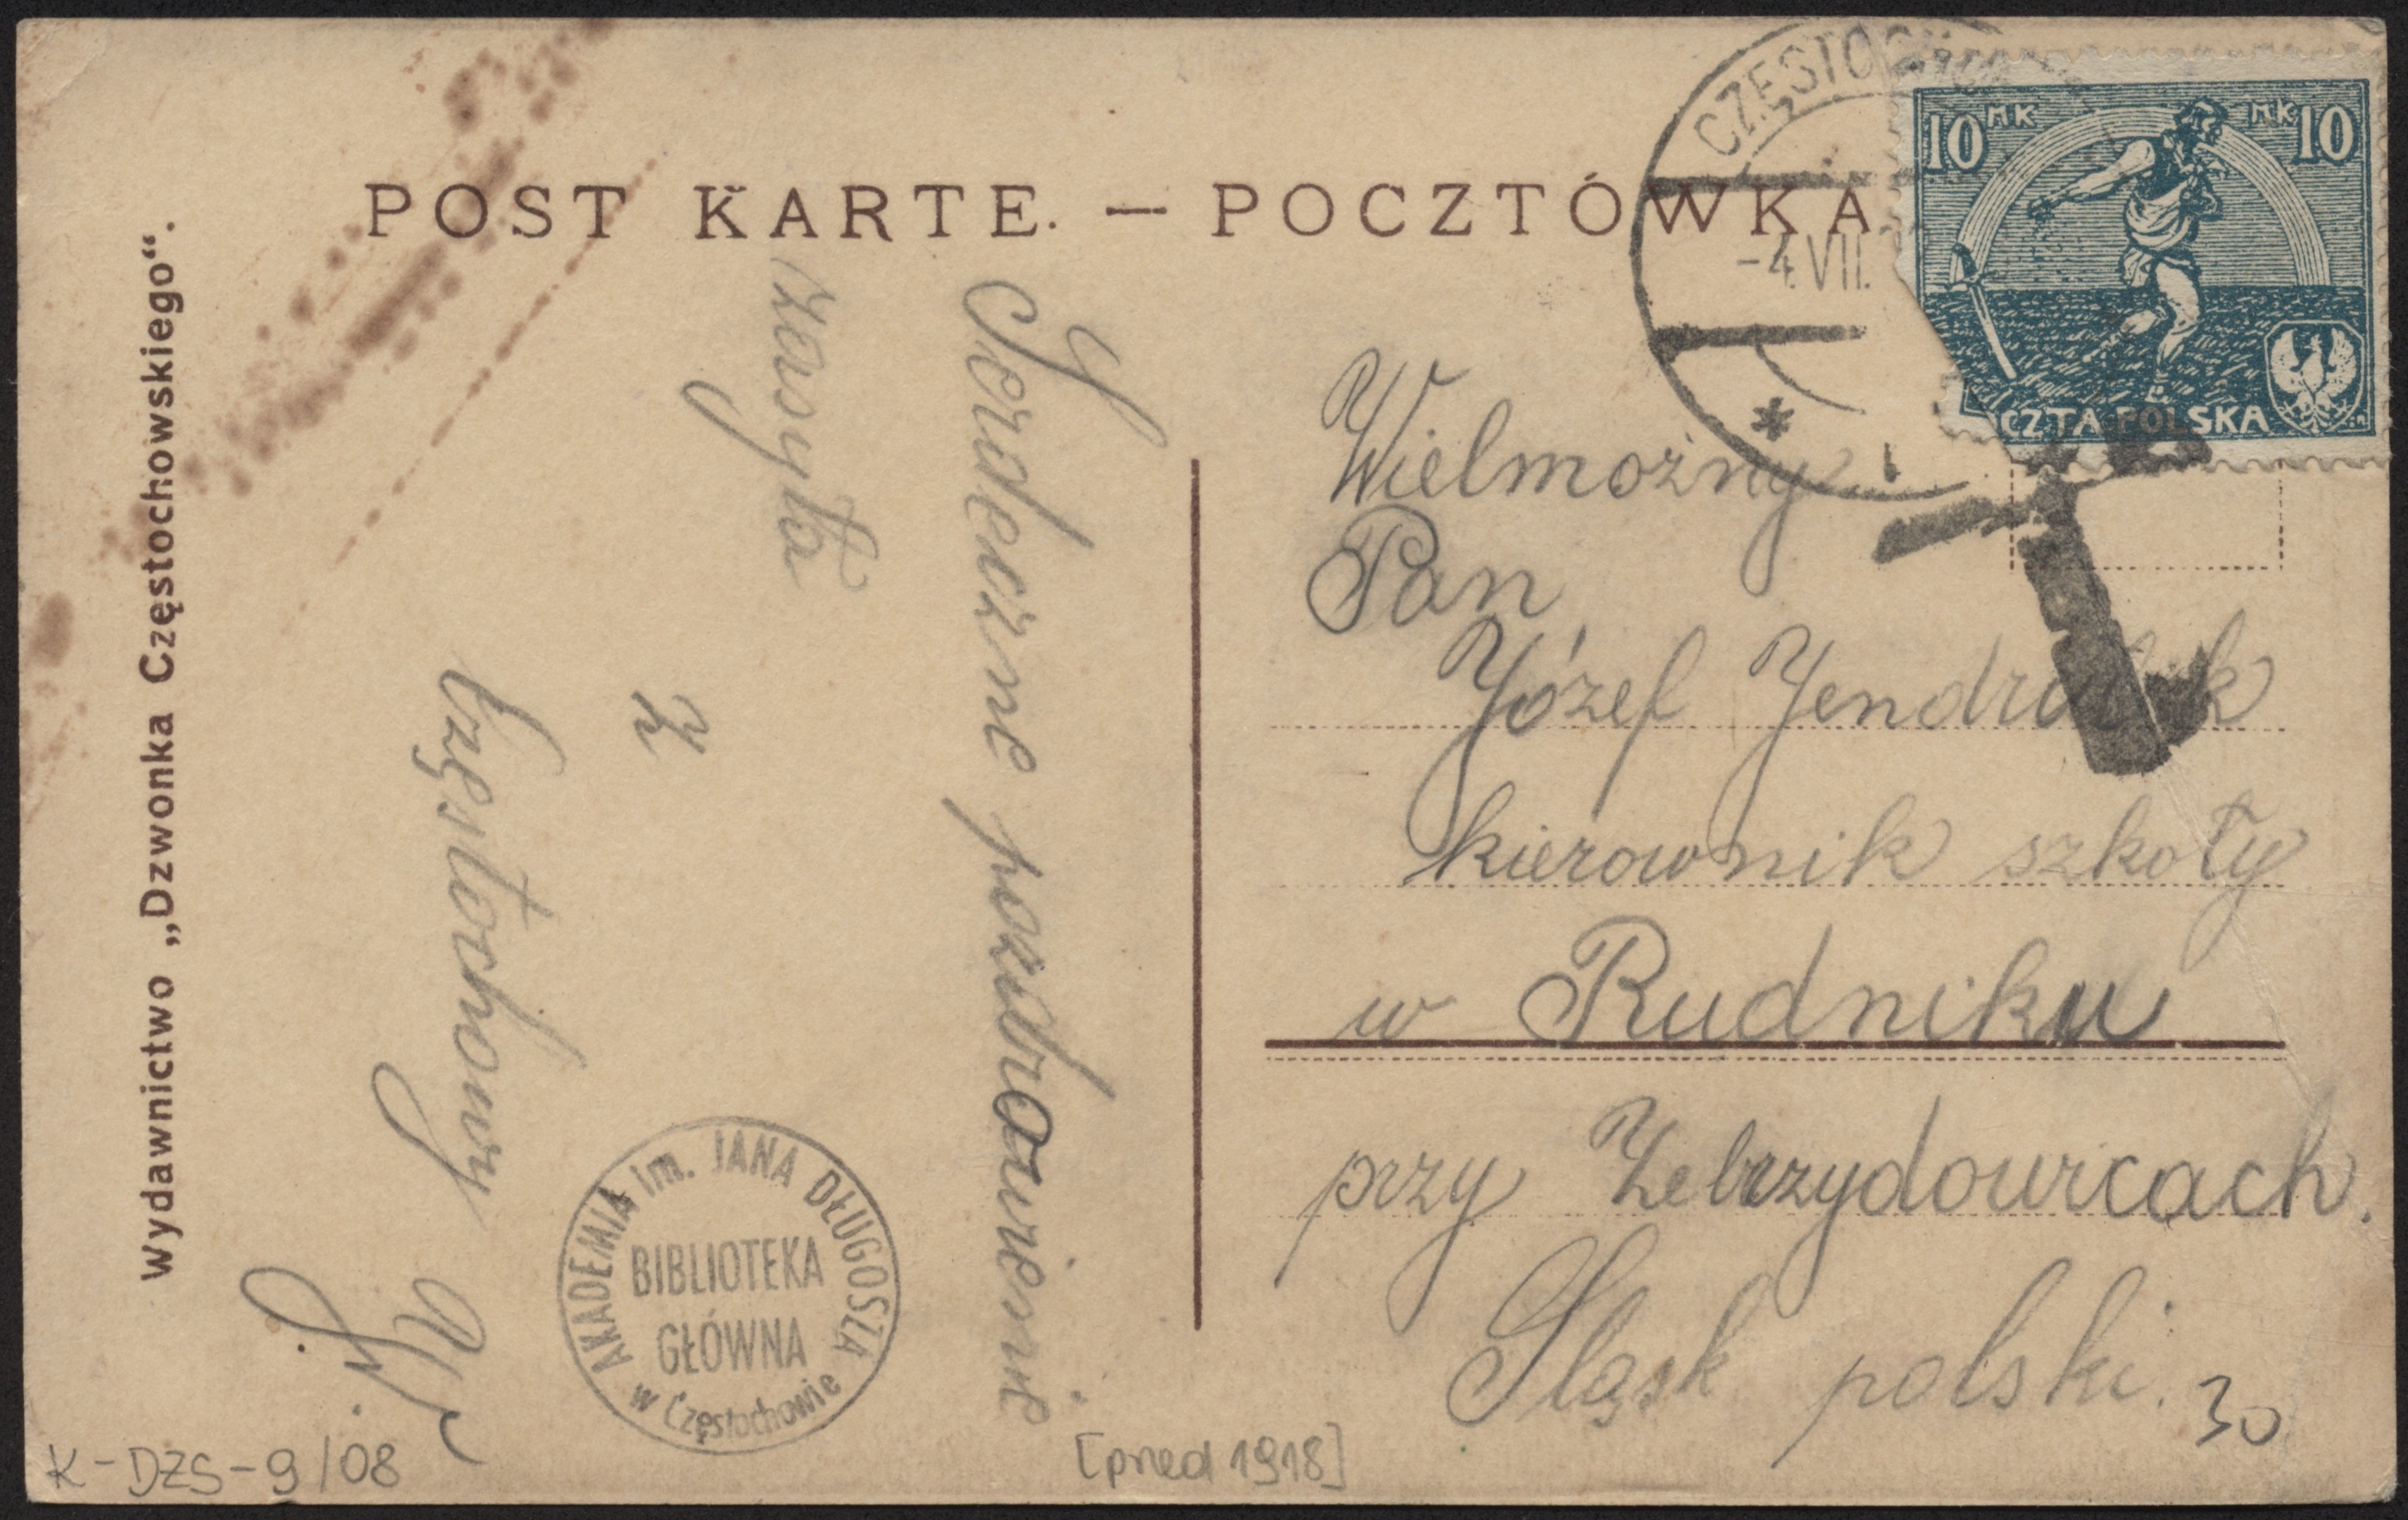 POST KARTE. — POCZTÓWKA
Wydawnictwo „Dzwonka Częstochowskiego“.
CZĘSTOCH
-4.VII.
10 MK MK 10
CZTA POLSKA
Serdeczne pozdrowienie
zasyła
z
Częstochowy
Wielmożny
Pan
Józef
kierownik szkoły
w Rudniku
przy Zebrzydowicach.
Śląsk polski.
30
AKADEMIA im. JANA DŁUGOSZA
BIBLIOTEKA
GŁÓWNA
w Częstochowie
K-DZS-9/08
[przed 1918]